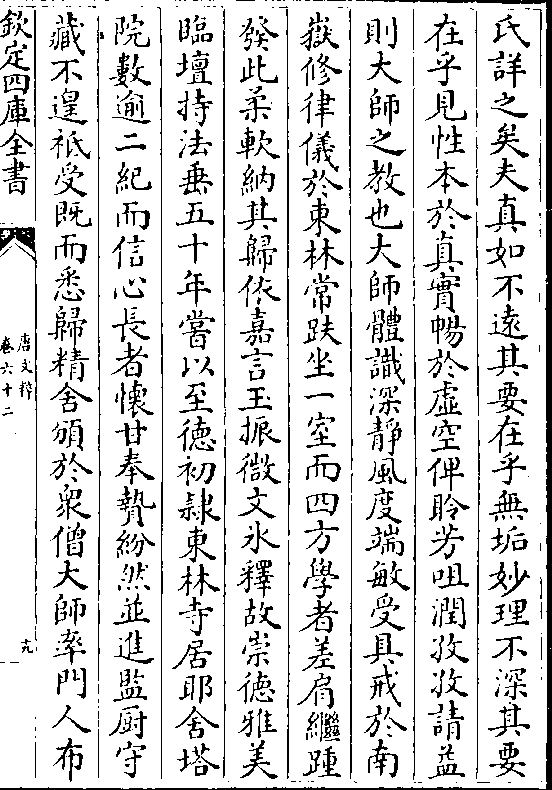 氏詳之矣夫真如不遠其要在乎無垢妙理不深其要
在乎見性本於真實暢於虛空俾聆芳咀潤孜孜請益
則大師之教也大師體識深靜風度端敏受具戒於南
嶽修律儀於東林常趺坐一室而四方學者差肩繼踵
發此柔軟納其歸依嘉言玉振微文氷釋故崇德雅美
臨壇持法垂五十年嘗以至德初隷東林寺居耶舍塔
院數逾二紀而信心長者懷甘奉贄紛然並進監厨守
藏不遑祗受既而悉歸精舍頒於衆僧大師率門人布
欽定四庫全書
唐文粹
卷六十二
十九